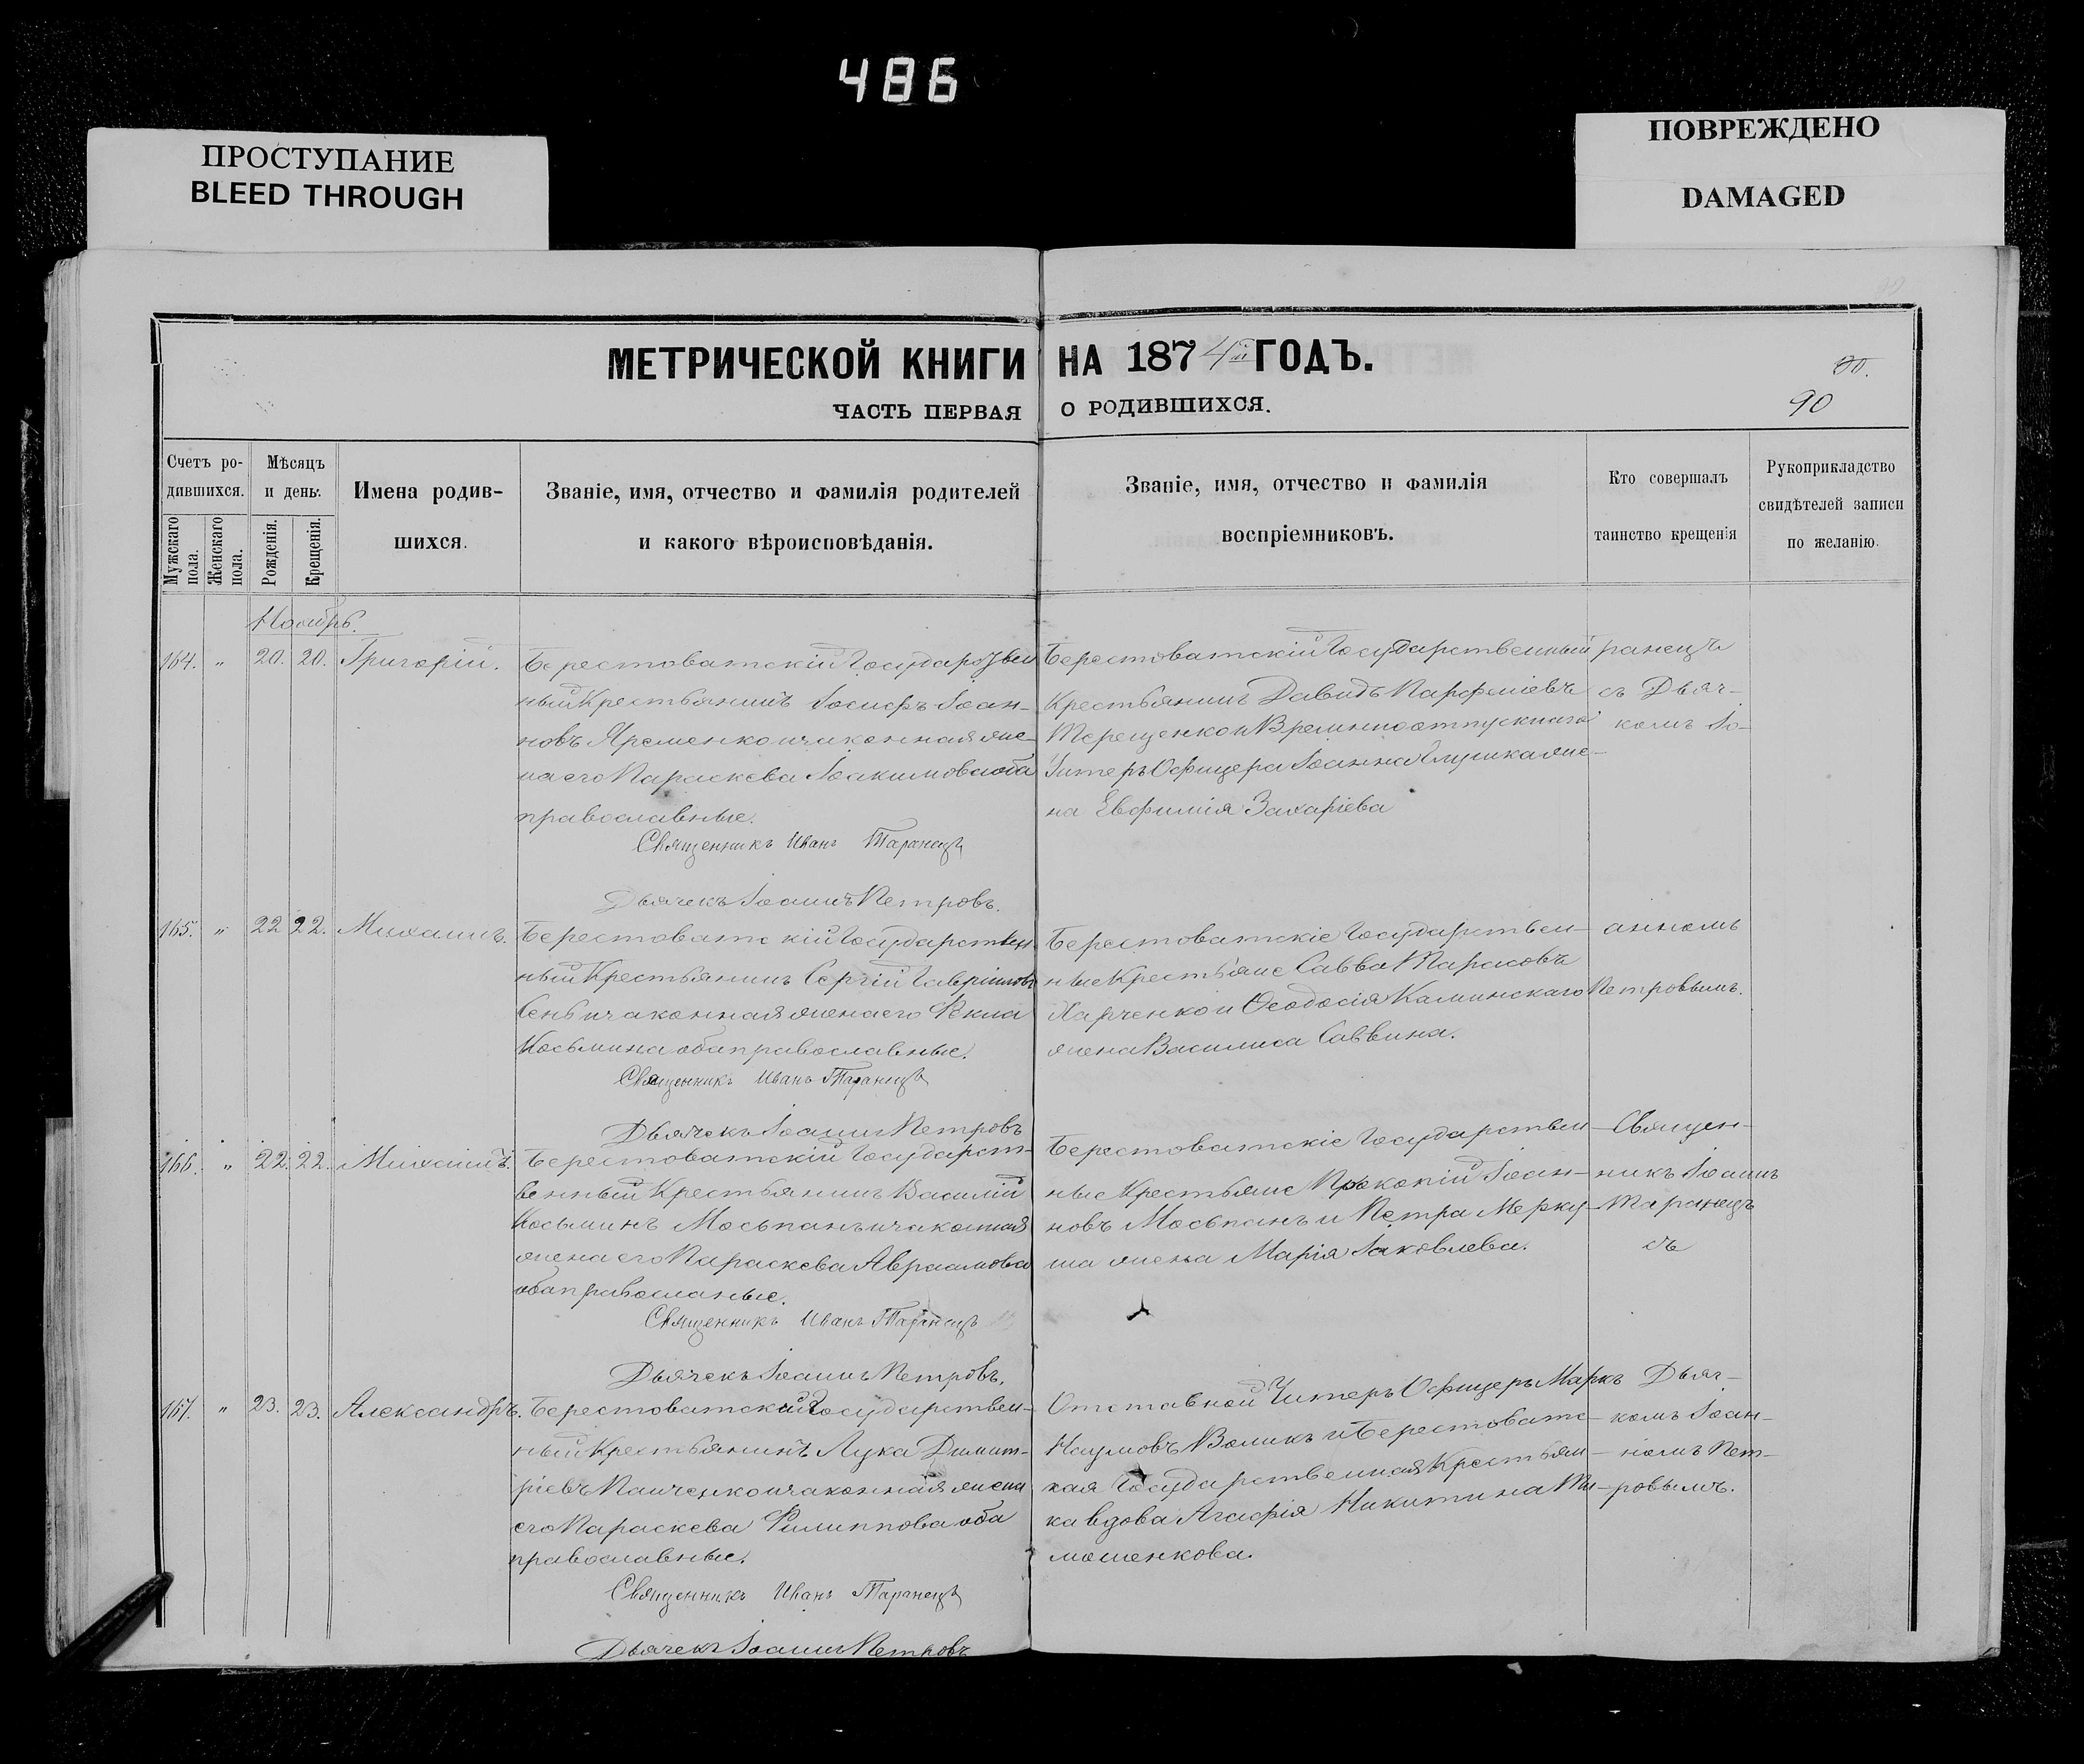 486
ПРОСТУПАНИЕ
BLEED THROUGH
ПОВРЕЖДЕНО
DAMAGED
МЕТРИЧЕСКОЙ КНИГИ НА 1874й ГОДЪ.
ЧАСТЬ ПЕРВАЯ О РОДИВШИХСЯ.
90
Счетъ ро-
дившихся.
Мужскаго
пола.
Женскаго
пола.
Мѣсяцъ
и день.
Рожденія.
Крещенія.
Имена родив-
шихся.
Званіе, имя, отчество и фамилія родителей
и какого вѣроисповѣданія.
Званіе, имя, отчество и фамилія
воспріемниковъ.
Кто совершалъ
таинство крещенія
Рукоприкладство
свидѣтелей записи
по желанію.
Ноябрь.
164. " 20. 20. Григорій.
Берестоватскій Государствен
ный Крестьянинъ Іосифъ Іоан-
новъ Яременко и законная же-
на его Параскева Іоакимова оба
православные.
Священникъ Иванъ Таранецъ
Дьячекъ Іоаннъ Петровъ.
Берестоватскій Государственный
Крестьянинъ Давидъ Парфеніевъ
Терещенко и Временноотпускнаго
Унтеръ Офицера Іоанна Глушка же-
на Евфимія Захаріева
ранецъ
съ Дьяч-
комъ Іо-
165. " 22 22. Михаилъ.
Берестоватскій Государствен
ный Крестьянинъ Сергій Гавріиловъ
Сень и законная жена его Фекла
Косьмина оба православные.
Священникъ Иванъ Таранецъ
Дьячекъ Іоаннъ Петровъ
Берестоватскіе Государствен
ные Крестьяне Савва Тарасовъ
Харченко и Ѳеодосія Калинскаго
жена Василиса Саввина.
анномъ
Петровымъ.
166. " 22. 22. Михаилъ.
Берестоватскій Государст-
венный Крестьянинъ Василій
Косьминъ Мосьпанъ и законная
жена его Параскева Авраамова
оба православные.
Священникъ Иванъ Таранецъ
Дьячекъ Іоаннъ Петровъ.
Берестоватскіе Государствен
ные Крестьяне Прокопій Іоан-
новъ Мосьпанъ и Петра Мерку-
ша жена Марія Іаковлева.
Священ-
никъ Іоаннъ
Таранецъ
съ
167. " 23. 23. Александръ.
Берестоватскій Государствен-
ный Крестьянинъ Лука Димит-
ріевъ Панченко и законная жена
его Параскева Филиппова оба
православные.
Священникъ Иванъ Таранецъ
Дьячекъ Іоаннъ Петровъ
Отставной Унтеръ Офицеръ Маркъ
Наумовъ Воликъ и Берестоватс-
кая Государственная Крестьян-
ка вдова Агафія Никитина Ти-
мошенкова.
Дьяч-
комъ Іоан-
номъ Пет-
ровымъ.